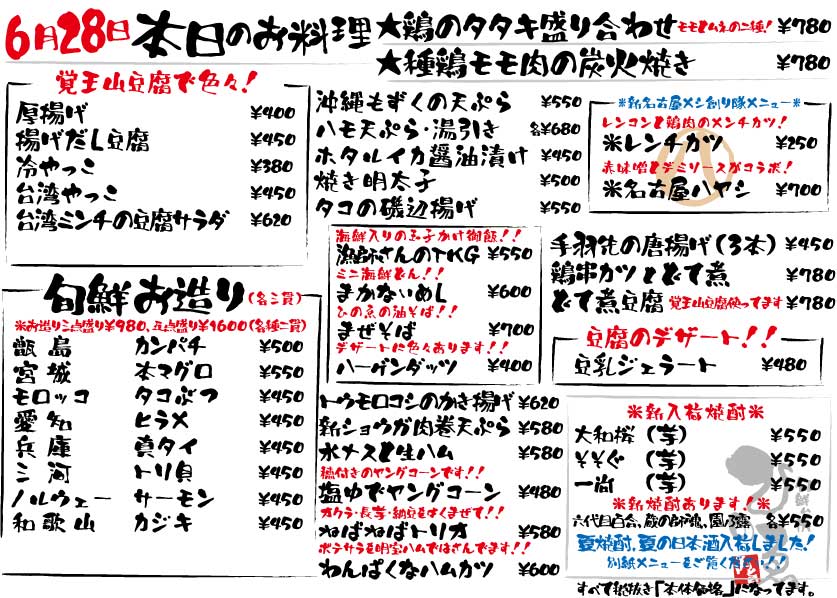 6月28日 本日のお料理
★鶏のタタキ盛り合わせ モモとムネの二種! ¥780
★種鶏モモ肉の炭火焼き ¥780
覚王山豆腐で色々!
厚揚げ ¥400
揚げだし豆腐 ¥450
冷やっこ ¥380
台湾やっこ ¥450
台湾ミンチの豆腐サラダ ¥620
旬鮮お造り(各三貫)
※お造り三点盛り¥980、五点盛り¥1600(各種二貫)
甑島 カンパチ ¥500
宮城 本マグロ ¥550
モロッコ タコぶつ ¥450
愛知 ヒラメ ¥450
兵庫 真タイ ¥450
三河 トリ貝 ¥450
ノルウェー サーモン ¥450
和歌山 カジキ ¥450
沖縄もずくの天ぷら ¥550
ハモ天ぷら・湯引き 各¥680
ホタルイカ醤油漬け ¥450
焼き明太子 ¥500
タコの磯辺揚げ ¥550
海鮮入りの玉子かけ御飯!!
漁師さんのTKG ¥550
ミニ海鮮どん!!
まかないめし ¥600
ひの恵の油そば!!
まぜそば ¥700
デザートに色々あります!!
ハーゲンダッツ ¥400
トウモロコシのかき揚げ ¥620
新ショウガ肉巻天ぷら ¥580
水ナスと生ハム ¥580
穂付きのヤングコーンです!!
塩ゆでヤングコーン ¥480
オクラ・長芋・納豆をよくまぜて!!
ねばねばトリオ ¥580
ポテサラを明宝ハムではさんでます!!
わんぱくなハムカツ ¥600
※新名古屋メシ創り隊メニュー※
レンコンと鶏肉のメンチカツ!
※レンチカツ ¥250
赤味噌とデミソースがコラボ!
※名古屋ハヤシ ¥700
手羽先の唐揚げ(3本) ¥450
鶏串カツとどて煮 ¥780
どて煮豆腐 覚王山豆腐使ってます ¥780
豆腐のデザート!!
豆乳ジェラート ¥480
※新入荷焼酎※
大和桜(芋) ¥550
そそぐ(芋) ¥550
一尚(芋) ¥550
※新焼酎あります!※
六代目百合、蔵の師魂、園乃露 各¥550
夏焼酎、夏の日本酒入荷しました!
別紙メニューをご覧ください!!
すべて税抜き「本体価格」になってます。